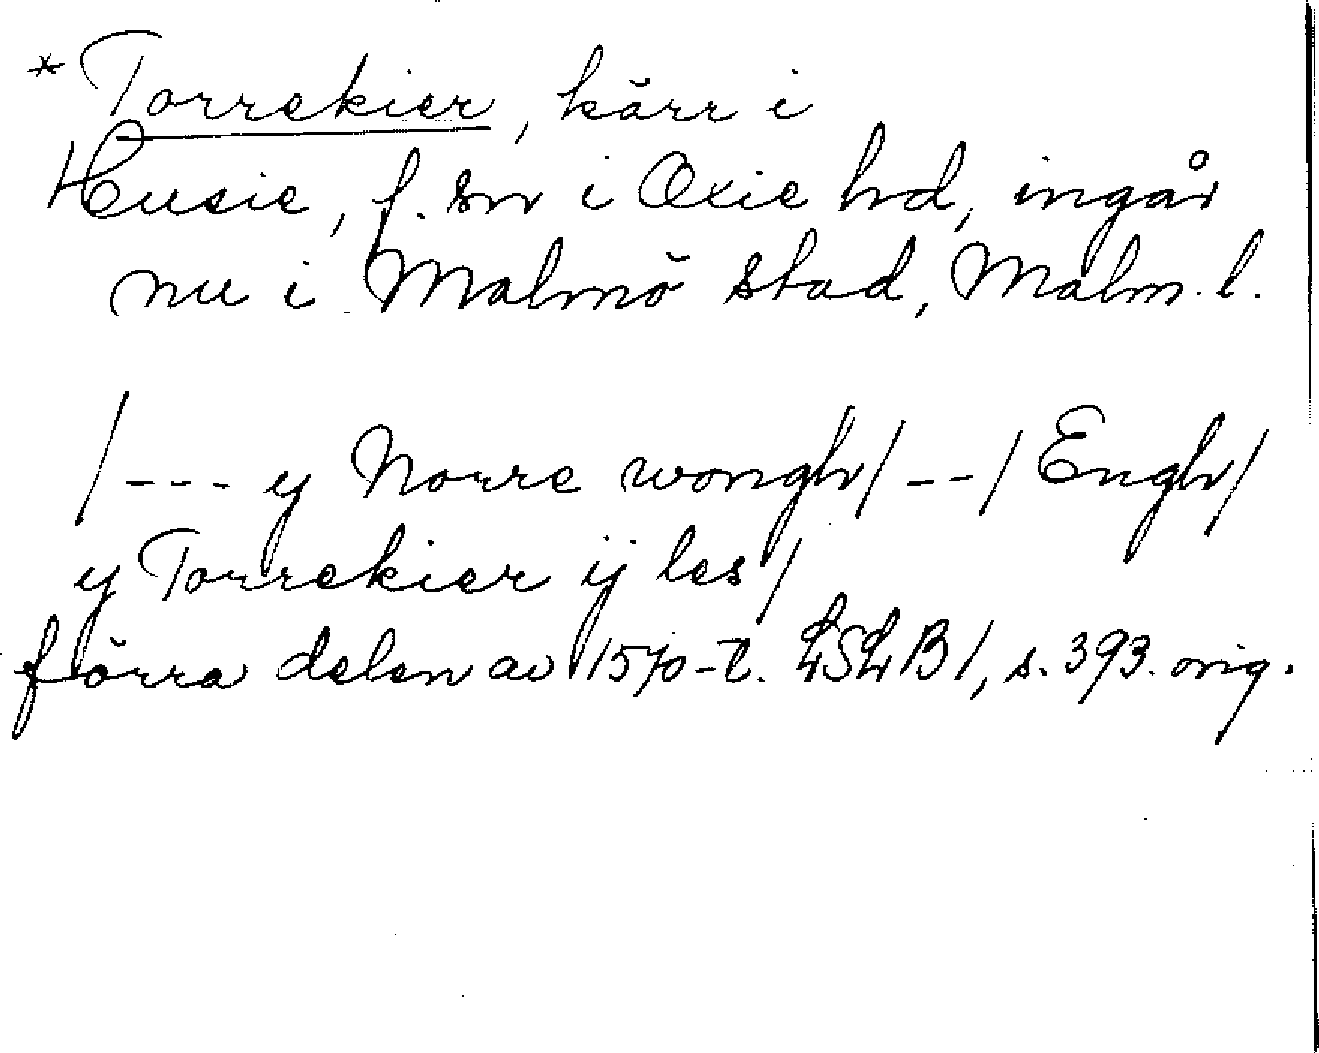 * Torrekier, kärr i
Husie, f. sn i Oxie hd, ingår
nu i Malmö stad, Malm. l.
/--- y Norre wongh/--/Engh/
y Torrekier ij les/
förra delen av 1570-t. LSLB 1, s. 393. orig.